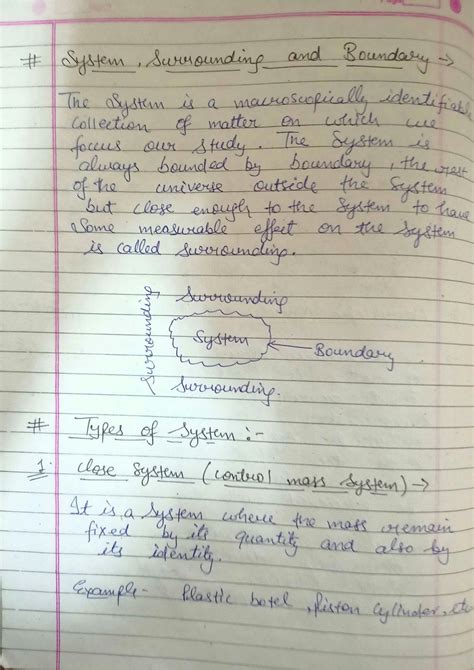 # System, Surrounding and Boundary →
The System is a macroscopically identifiable
collection of matter on which we
focus our study. The System is
always bounded by boundary, the rest
of the universe outside the System
but close enough to the System to have
Some measurable effect on the System
is called surrounding.
Surrounding
Surrounding
System
Boundary
Surrounding.
# Types of System :-
1. Close System (control mass System) →
It is a System where the mass remain
fixed by its quantity and also by
its identity.
Example - Plastic botel, Piston Cylinder, etc